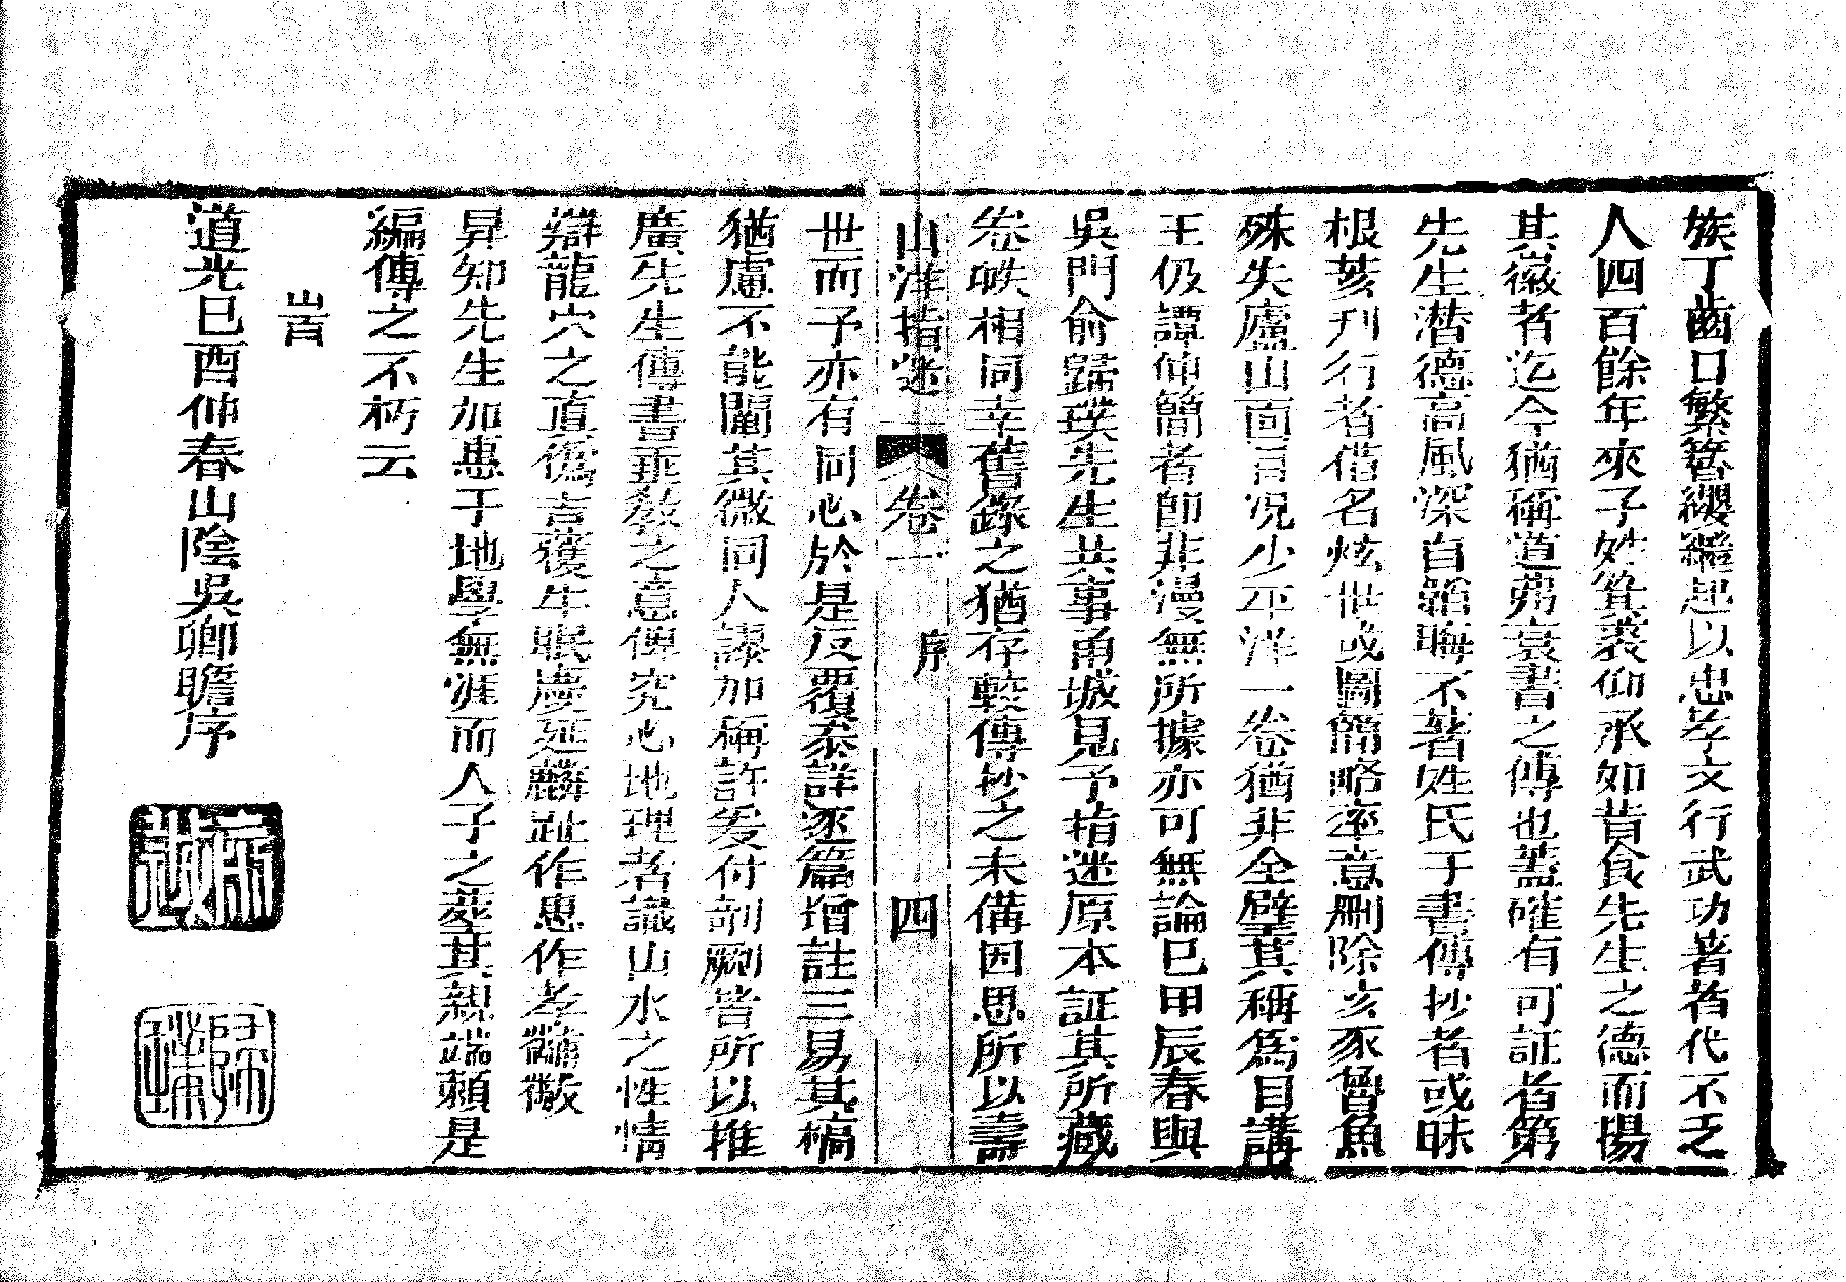 族丁齒口繁簪纓繼起以忠孝文行武功著者代不乏
人四百餘年來子姓箕裘仰承如昔食先生之德而揚
其徽者迄今猶稱道弗衰書之傳也蓋確有可証者第
先生潛德高風深自韜晦不著姓氏于書傳抄者或昧
根荄刊行者借名炫世或圖簡略率意刪除亥豕魯魚
殊失廬山面目况少平洋一卷猶非全璧其稱爲目講
王伋譚仲簡者卽非漫無所據亦可無論已甲辰春與
吳門俞歸璞先生共事甬城見予指迷原本証其所藏
卷帙相同幸舊錄之猶存較傳抄之未備因思所以壽
山洋指迷 卷一 序 四
世而予亦有同心於是反覆叅詳逐篇增註三易其稿
猶慮不能闡其微同人謬加稱許爰付剞劂皆所以推
廣先生傳書垂敎之意俾究心地理者識山水之性情
辯龍穴之直僞吉獲牛眠慶延麟趾作忠作孝黼黻
昇知先生加惠于地學無涯而人子之葬其親端賴是
編傳之不朽云
旹
道光已酉仲春山陰吳卿瞻序